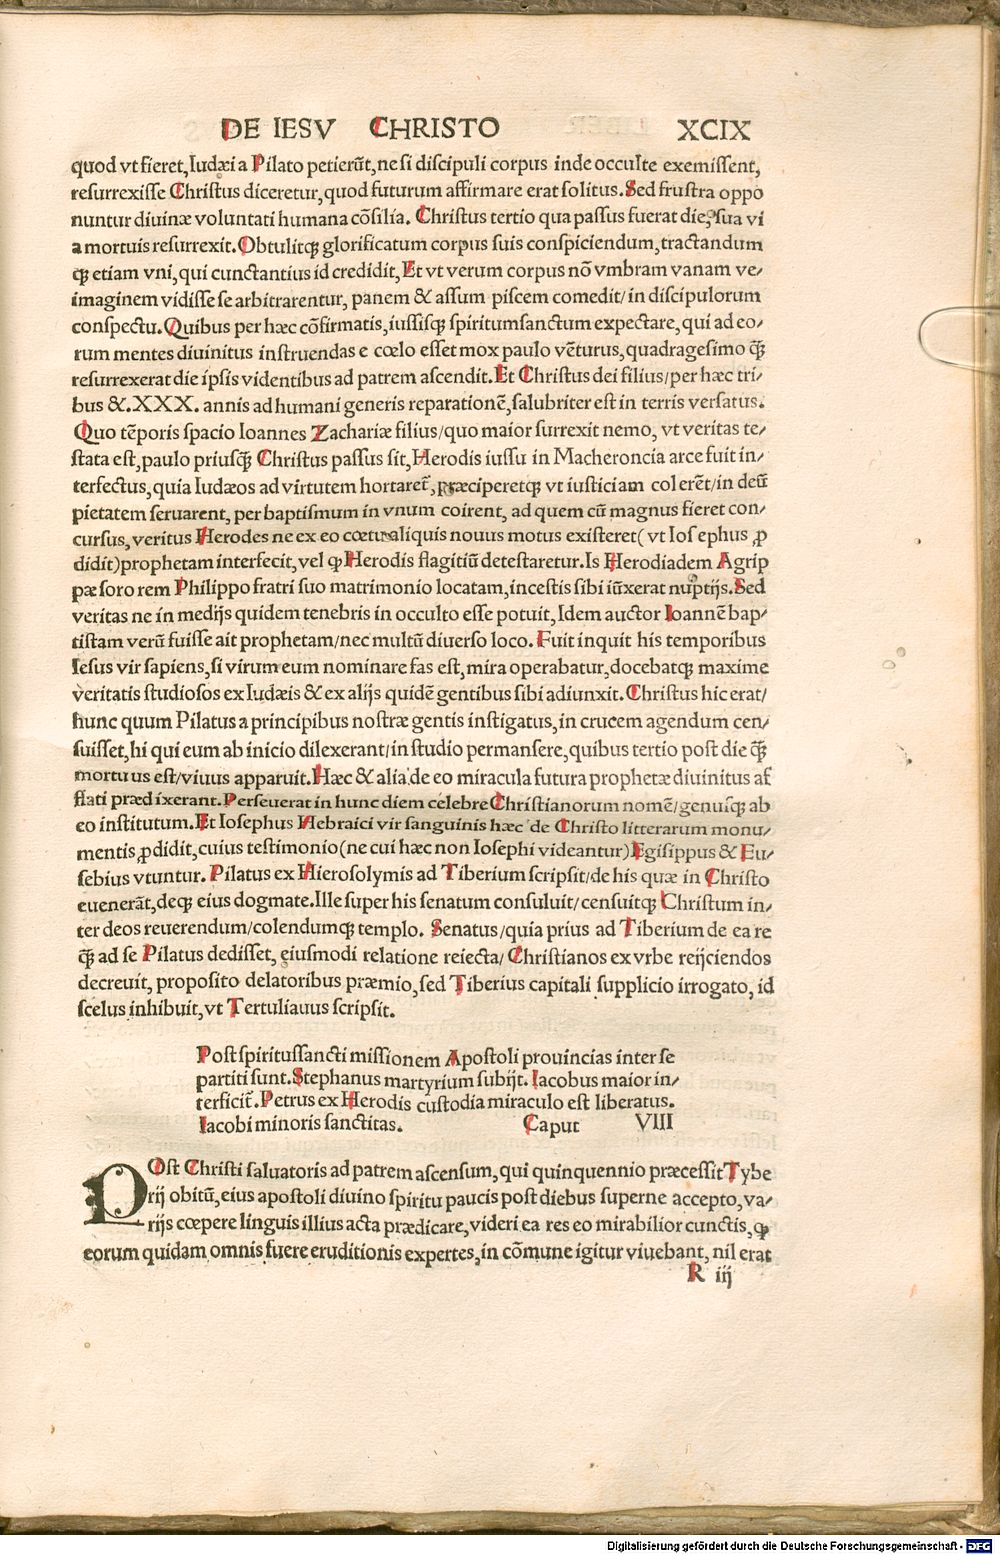 DE IESV CHRISTO XCIX
quod vt fieret, Iudæi a Pilato petierūt, ne si discipuli corpus inde occulte exemissent,
resurrexisse Christus diceretur, quod futurum affirmare erat solitus. Sed frustra oppo
nuntur diuinæ voluntati humana cōsilia. Christus tertio qua passus fuerat die, sua vi
a mortuis resurrexit. Obtulitqꝫ glorificatum corpus suis conspiciendum, tractandum
qꝫ etiam vni, qui cunctantius id credidit, Et vt verum corpus nō vmbram vanam ve/
imaginem vidisse se arbitrarentur, panem & assum piscem comedit/ in discipulorum
conspectu. Quibus per hæc cōfirmatis, iussisqꝫ spiritumsanctum expectare, qui ad eo/
rum mentes diuinitus instruendas e cœlo esset mox paulo vēturus, quadragesimo qꝫ̄
resurrexerat die ipsis videntibus ad patrem ascendit. Et Christus dei filius/ per hæc tri/
bus &. XXX. annis ad humani generis reparationē, salubriter est in terris versatus.
Quo tēporis spacio Ioannes Zachariæ filius/ quo maior surrexit nemo, vt veritas te/
stata est, paulo priusqꝫ̄ Christus passus sit, Herodis iussu in Macheroncia arce fuit in/
terfectus, quia Iudæos ad virtutem hortaret̄, præciperetqꝫ vt iusticiam colerēt/ in deū
pietatem seruarent, per baptismum in vnum coirent, ad quem cū magnus fieret con/
cursus, veritus Herodes ne ex eo cœtu aliquis nouus motus existeret ( vt Iosephus ꝓ
didit) prophetam interfecit, vel ꝙ Herodis flagitiū detestaretur. Is Herodiadem Agrip
pæ sororem Philippo fratri suo matrimonio locatam, incestis sibi iūxerat nuptijs. Sed
veritas ne in medijs quidem tenebris in occulto esse potuit, Idem auctor Ioannē bap/
tistam verū fuisse ait prophetam/ nec multū diuerso loco. Fuit inquit his temporibus
Iesus vir sapiens, si virum eum nominare fas est, mira operabatur, docebatqꝫ maxime
veritatis studiosos ex Iudæis & ex alijs quidē gentibus sibi adiunxit. Christus hic erat/
hunc quum Pilatus a principibus nostræ gentis instigatus, in crucem agendum cen/
suisset, hi qui eum ab inicio dilexerant/ in studio permansere, quibus tertio post die qꝫ̄
mortuus est/ viuus apparuit. Hæc & alia de eo miracula futura prophetæ diuinitus af
flati prædixerant. Perseuerat in hunc diem celebre Christianorum nomē/ genusqꝫ ab
eo institutum. Et Iosephus Hebraici vir sanguinis hæc de Christo litterarum monu/
mentis ꝓdidit, cuius testimonio (ne cui hæc non Iosephi videantur) Egisippus & Eu/
sebius vtuntur. Pilatus ex Hierosolymis ad Tiberium scripsit/ de his quæ in Christo
euenerāt, deqꝫ eius dogmate. Ille super his senatum consuluit/ censuitqꝫ Christum in/
ter deos reuerendum/ colendumqꝫ templo. Senatus/ quia prius ad Tiberium de ea re
qꝫ̄ ad se Pilatus dedisset, eiusmodi relatione reiecta/ Christianos ex vrbe reijciendos
decreuit, proposito delatoribus præmio, sed Tiberius capitali supplicio irrogato, id
scelus inhibuit, vt Tertuliauus scripsit.
Post spiritussancti missionem Apostoli prouincias inter se
partiti sunt. Stephanus martyrium subijt. Iacobus maior in/
terficit̄. Petrus ex Herodis custodia miraculo est liberatus.
Iacobi minoris sanctitas. Caput VIII
POst Christi saluatoris ad patrem ascensum, qui quinquennio præcessit Tybe
rij obitū, eius apostoli diuino spiritu paucis post diebus superne accepto, va/
rijs cœpere linguis illius acta prædicare, videri ea res eo mirabilior cunctis, ꝙ
eorum quidam omnis fuere eruditionis expertes, in cōmune igitur viuebant, nil erat
R iij
Digitalisierung gefördert durch die Deutsche Forschungsgemeinschaft - DFG